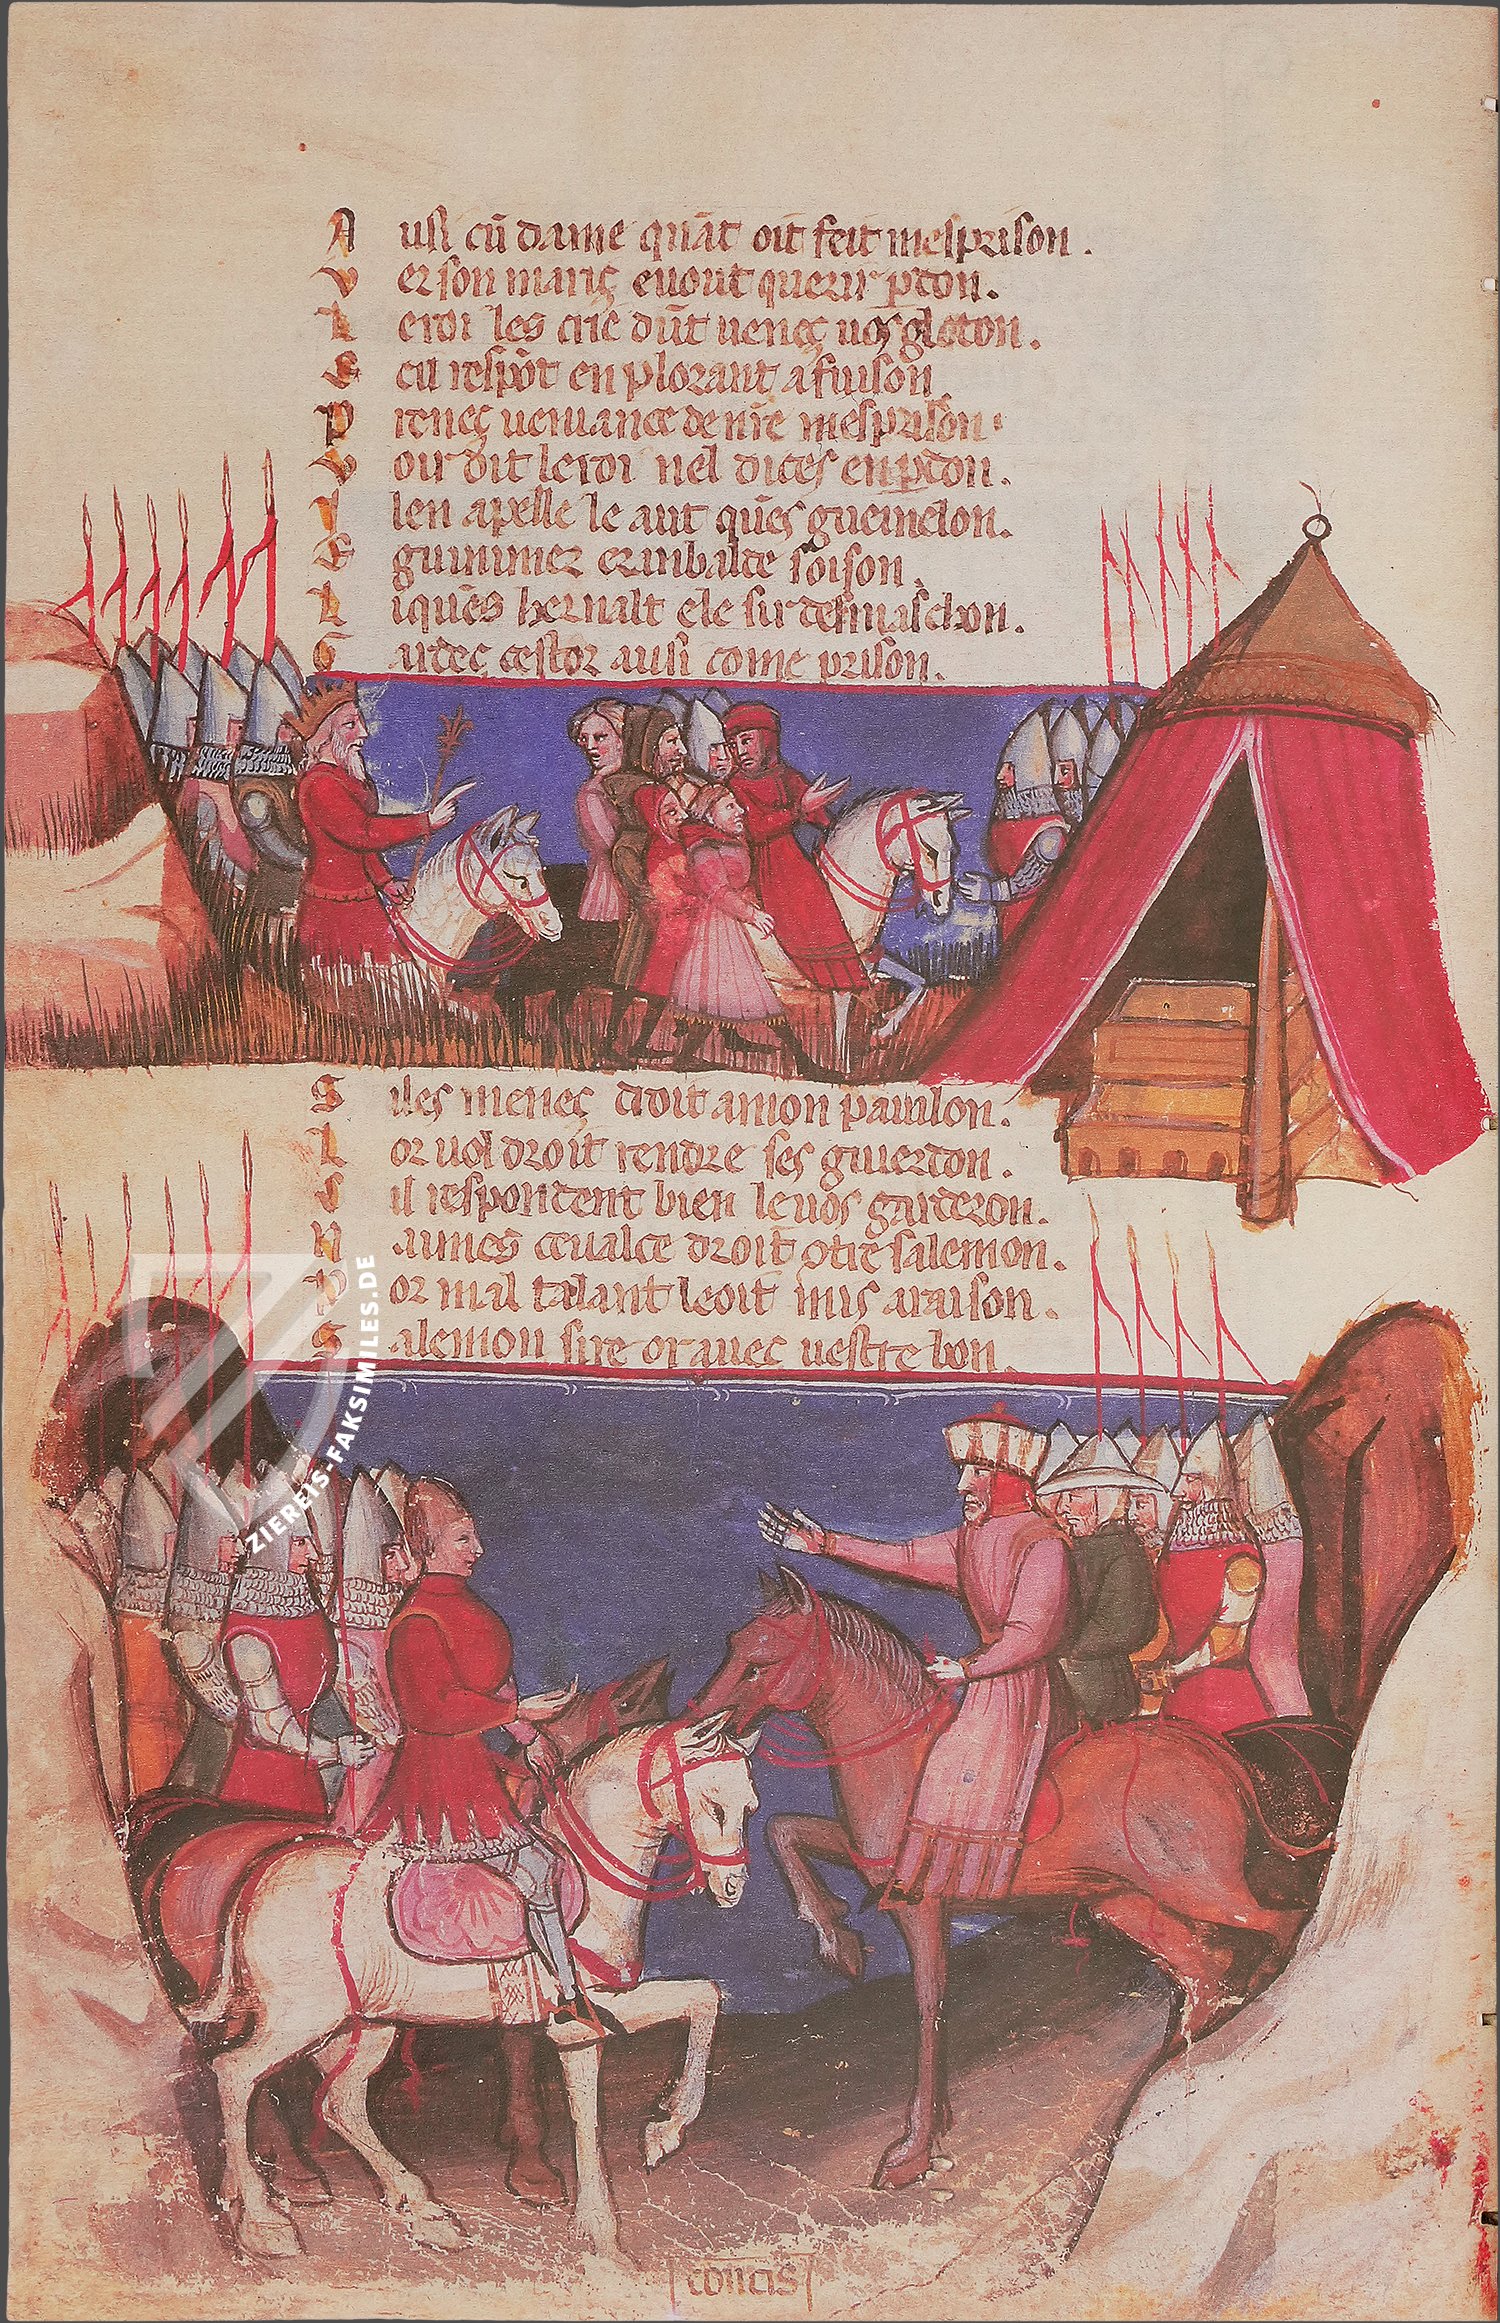 A usi cū dame qnāt oit feit mesprison .
V er son mariç e uont querir pdon .
L e roi les crie dūt ueneç uos gloton .
E cil respōt en plorant a fuison
P reneç ueniance de nr̄e mesprison .
V oir dit le roi nel dites en pdon .
I l en apelle le aut quēs guenelon .
E guinimer erinbalt de soison .
L i quēs hernalt e le sir de
G ardeç cestor ausi come prison .
S i les meneç droit a mon pauilon .
L or uol droit rendre ses guierdon .
C il respondent bien le uos garderon .
N aimes ceualce droit 9tre salemon .
P or mal talant le oit mis a raison .
S alemon sire or aueç uestre bon .
concis
ZIEREIS-FAKSIMILES.DE